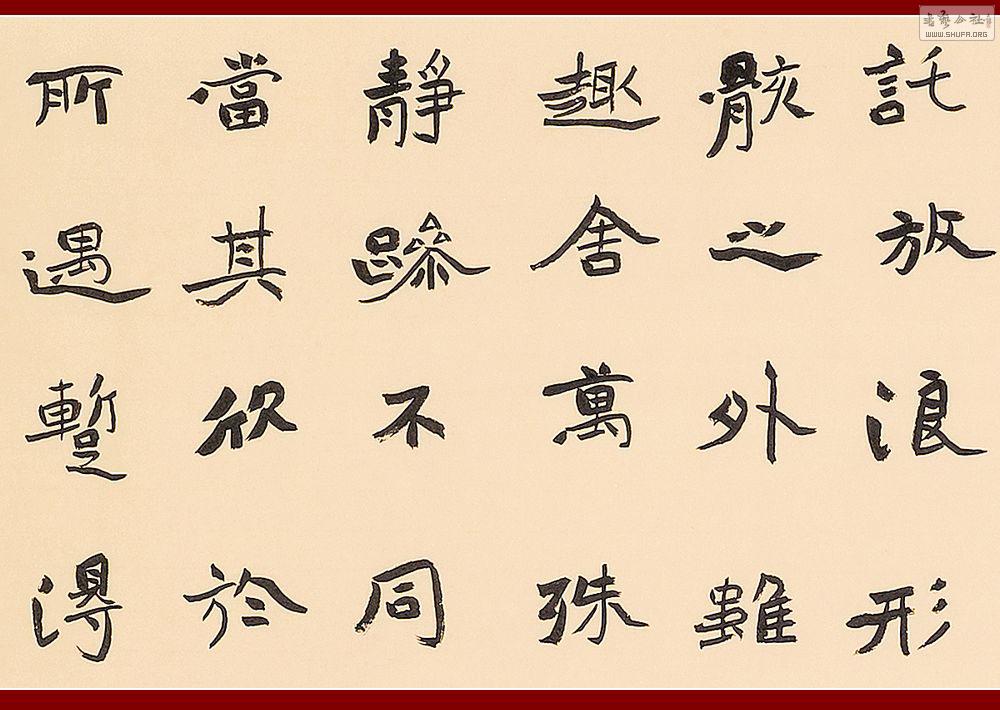 託放浪形
骸之外雖
趣舍萬殊
靜躁不同
當其欣於
所遇蹔得
书艺公社
WWW.SHUFA.ORG